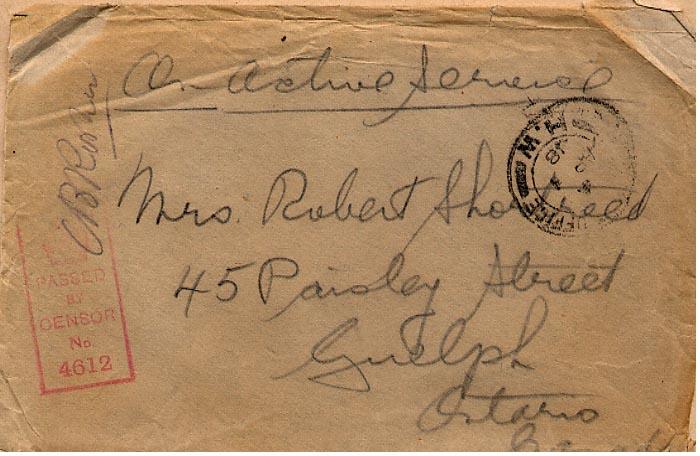 On Active Service
Mrs. Robert Shortreed
45 Paisley Street
Guelph
Ontario
Canada
PASSED
BY
CENSOR
No
4612
OFFICE